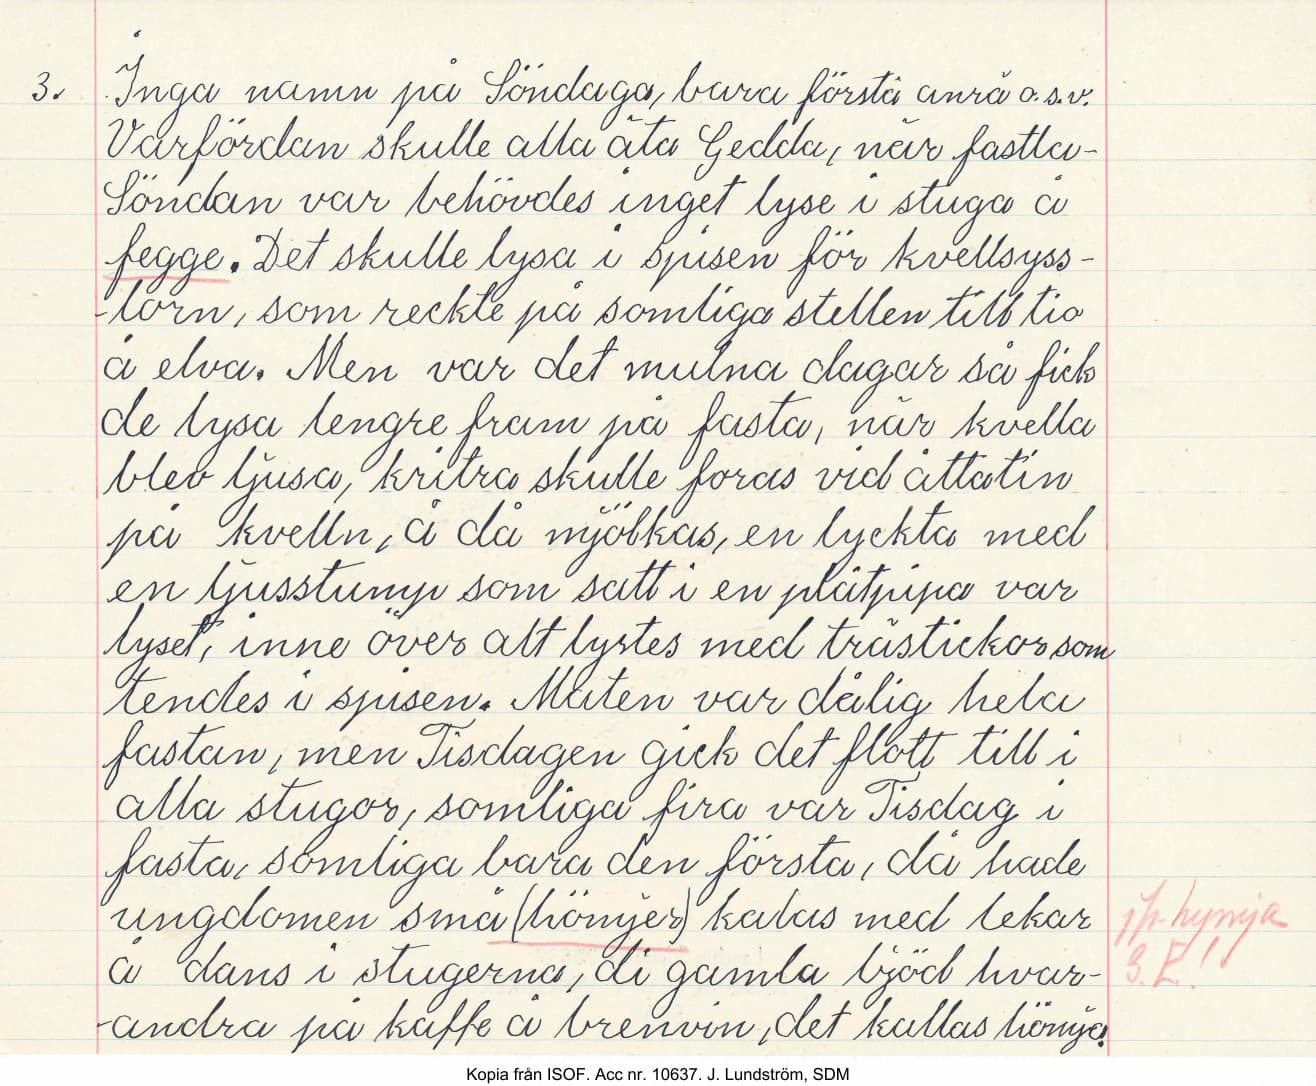 3. Inga namn på Söndaga, bara första anrå o.s.v.
Varfördan skulle alla äta Gedda, när fastla-
Söndan var behövdes inget lyse i stuga å
fegge. Det skulle lysa i spisen för kvellsyss-
-lorn, som reckte på somliga stellen till tio
å elva. Men var det mulna dagar så fick
de lysa lengre fram på fasta, när kvella
blev ljusa, kritra skulle foras vid åttatin
på kvelln, å då mjölkas, en lyckta med
en ljusstump som satt i en plåtpipa var
lyset, inne över allt lystes med trästickor som
tendes i spisen. Maten var dålig hela
fastan, men Tisdagen gick det flott till i
alla stugor, somliga fira var Tisdag i
fasta, somliga bara den första, då hade
ungdomen små (hömjer) kalas med lekar
å dans i stugerna, di gamla bjöd hvar-
-andra på kaffe å brenvin, det kallas hömja.
jfr. hymja
S. E.!
Kopia från ISOF. Acc nr. 10637. J. Lundström, SDM